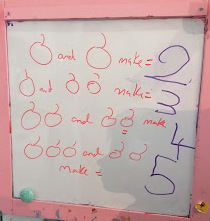 and make = 2
and make = 3
and make 4
=
and make = 5